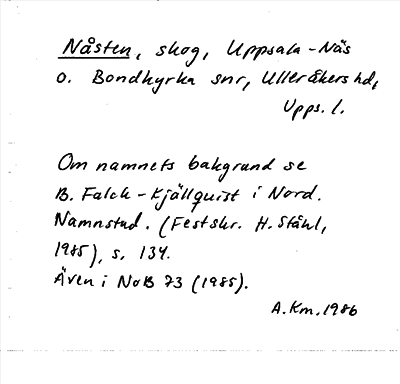 Nåsten, skog, Uppsala-Näs
o. Bondkyrka snr, Ulleråkers hd,
Upps. l.
Om namnets bakgrund se
B. Falck-Kjällquist i Nord.
Namnstud. (Festskr. H. Ståhl,
1985), s. 134.
Även i NoB 73 (1985).
A.Km.1986